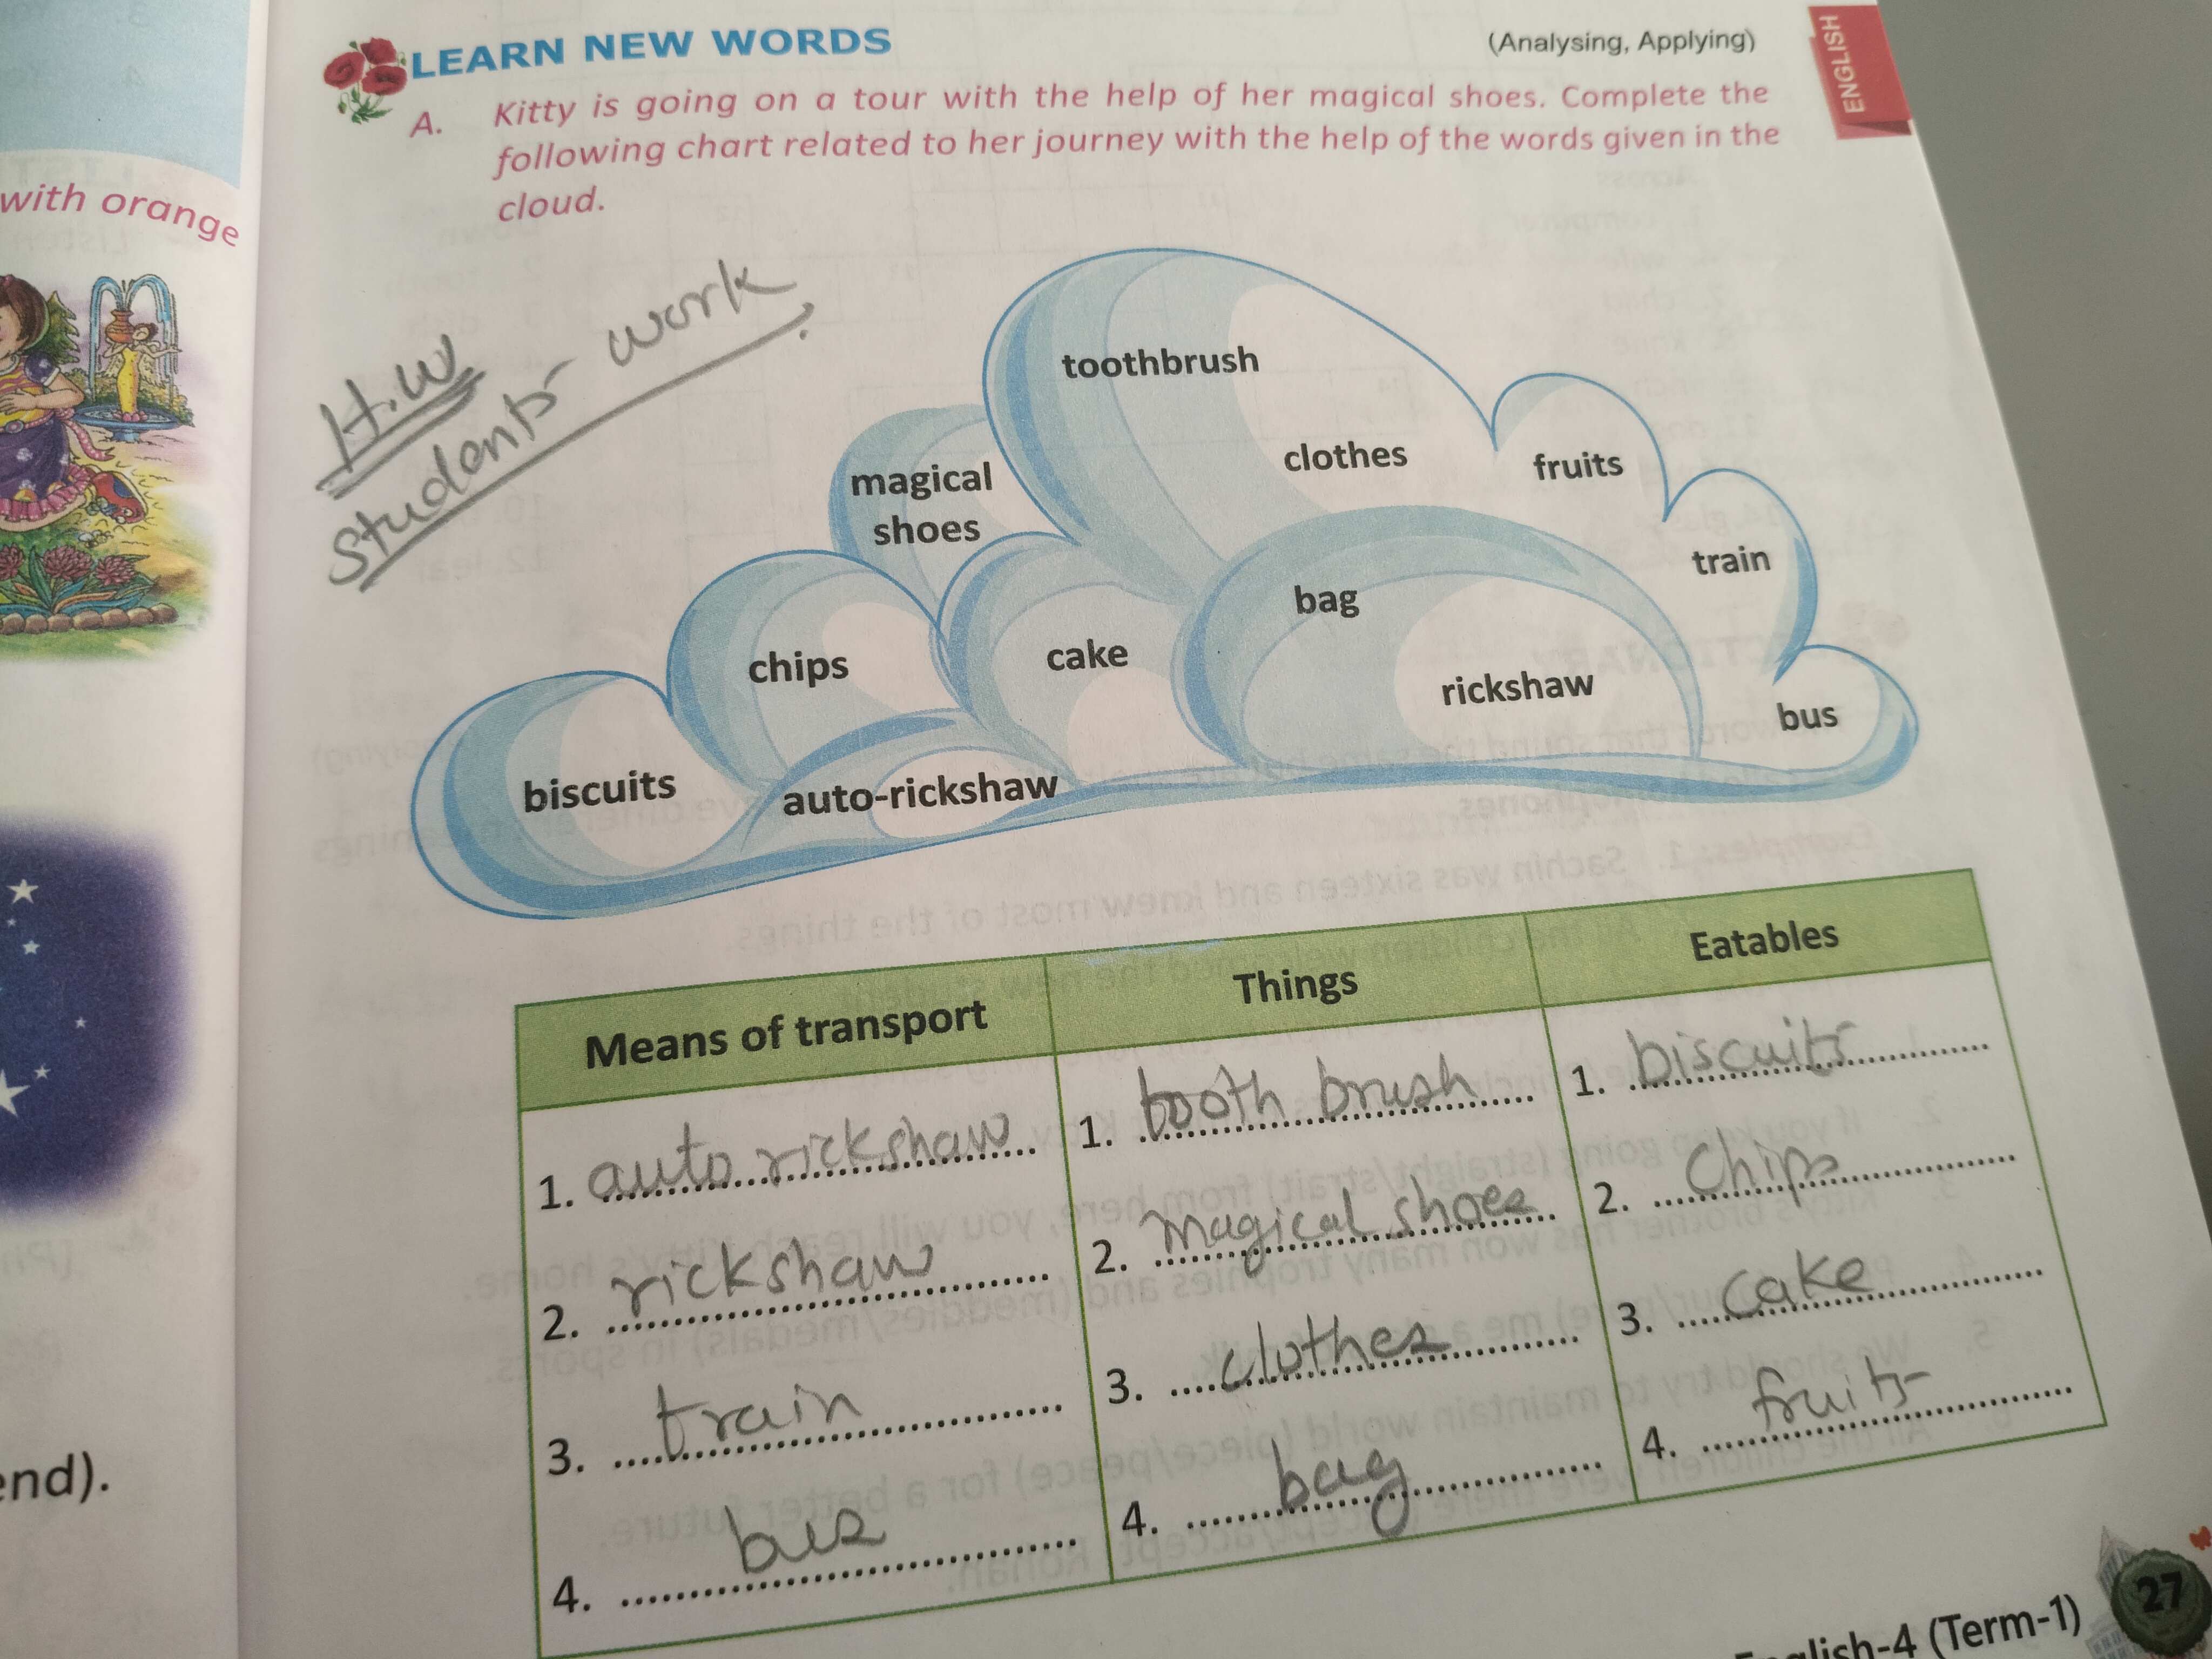 LEARN NEW WORDS
(Analysing, Applying)
ENGLISH
A. Kitty is going on a tour with the help of her magical shoes. Complete the
following chart related to her journey with the help of the words given in the
cloud.
with orange
H.W
Students work.
toothbrush
clothes
fruits
magical
shoes
train
bag
chips
cake
rickshaw
bus
biscuits
auto-rickshaw
Means of transport
Things
Eatables
1. auto rickshaw
1. tooth brush
1. biscuits
2. rickshaw
2. magical shoes
2. Chips
3. train
3. clothes
3. Cake
4. bus
4. bag
4. fruits
end).
English-4 (Term-1)
27